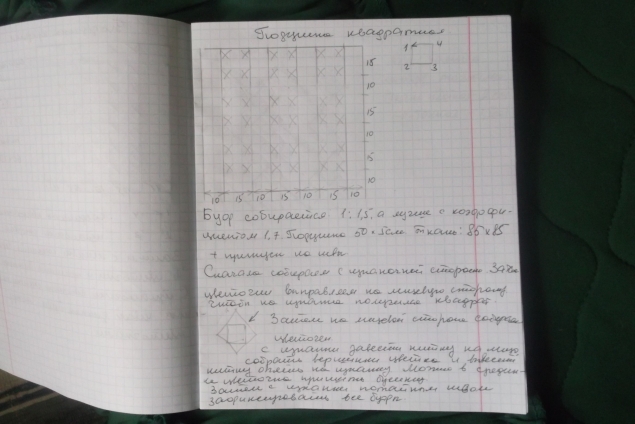 Подушка квадратная
1 4
2 3
15
10
15
10
15
10
10 15 10 15 10 15 10
Буф собирается 1:1,5, а лучше с коэффи-
циентом 1,7. Подушка 50 × 50см ткань: 85 х 85
+ припуск на швы
Сначала собираем с изнаночной стороны. Затем
цветочки выправляем на лицевую сторону
чтобы на изнанке получился квадрат.
Затем на лицевой стороне собираем
цветочек
с изнанки завести нитку на лицо
собрать вершинки цветка и вывести
нитку опять на изнанку. Можно в середин-
ке цветочка пришить бусинку
Затем с изнанки потайным швом
зафиксировать все буфы